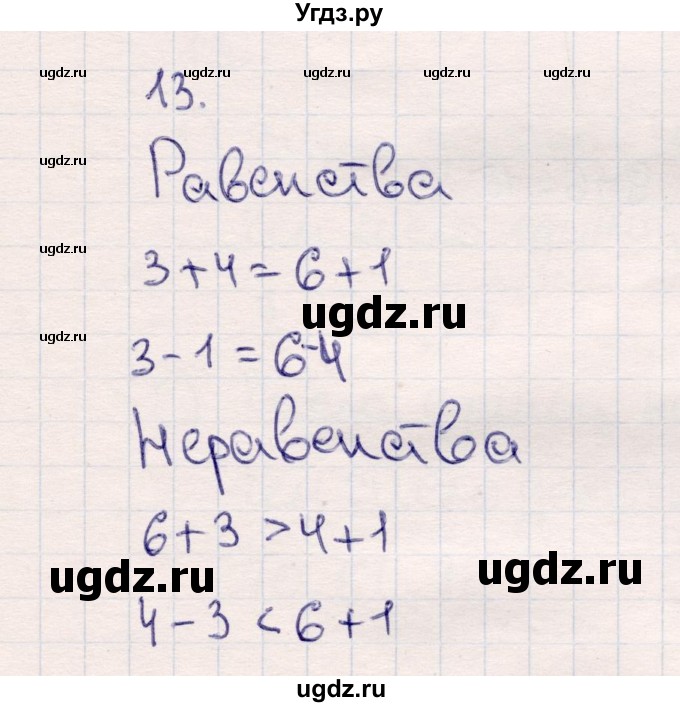 Угдз.ру
ugdz.ru ugdz.ru ugdz.ru ugdz.ru ugdz.ru
13.
ugdz.ru
Равенства
ugdz.ru
3+4=6+1
ugdz.ru
ugdz.ru
3-1=6-4
Неравенства
6+3>4+1
ugdz.ru
ugdz.ru
4-3<6+1
ugdz.ru